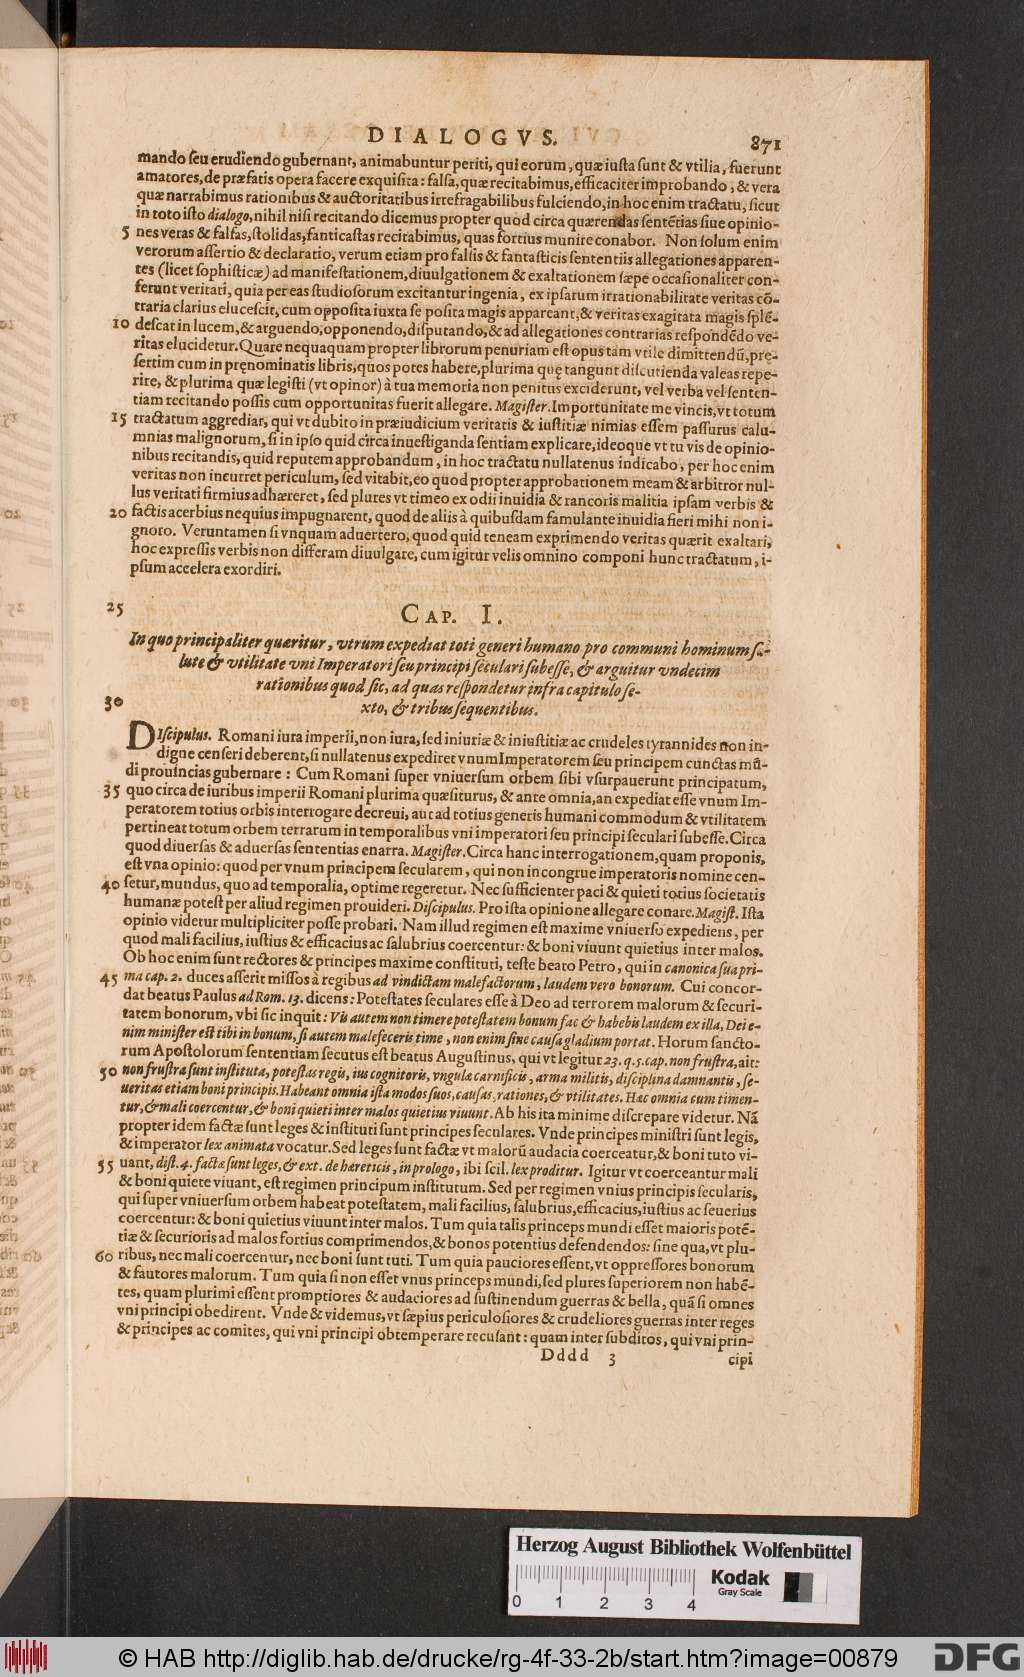 DIALOGVS. 871
mando ſeu erudiendo gubernant, animabuntur periti, qui eorum, quæ iuſta ſunt & vtilia, fuerunt
amatores, de præfatis opera facere exquiſita: falſa, quæ recitabimus, efficaciter improbando, & vera
quæ narrabimus rationibus & auctoritatibus irrefragabilibus fulciendo, in hoc enim tractatu, ſicut
in toto iſto dialogo, nihil niſi recitando dicemus propter quod circa quærendas ſentẽtias ſiue opinio-
5 nes veras & falſas, ſtolidas, fanticaſtas recitabimus, quas fortius munire conabor. Non ſolum enim
verorum aſſertio & declaratio, verum etiam pro falſis & fantaſticis ſententiis allegationes apparen-
tes (licet ſophiſticæ) ad manifeſtationem, diuulgationem & exaltationem ſæpe occaſionaliter con-
ferunt veritati, quia per eas ſtudioſorum excitantur ingenia, ex ipſarum irrationabilitate veritas cõ-
traria clarius eluceſcit, cum oppoſita iuxta ſe poſita magis appareant, & veritas exagitata magis ſplẽ-
10 deſcat in lucem, & arguendo, opponendo, diſputando, & ad allegationes contrarias reſpondẽdo ve-
ritas elucidetur. Quare nequaquam propter librorum penuriam eſt opus tam vtile dimittendũ, prę-
ſertim cum in pręnominatis libris, quos potes habere, plurima quę tangunt diſcutienda valeas repe-
rire, & plurima quæ legiſti (vt opinor) à tua memoria non penitus exciderunt, vel verba vel ſenten-
tiam recitando poſſis cum opportunitas fuerit allegare. Magiſter. Importunitate me vincis, vt totum
15 tractatum aggrediar, qui vt dubito in præiudicium veritatis & iuſtitiæ nimias eſſem paſſurus calu-
mnias malignorum, ſi in ipſo quid circa inueſtiganda ſentiam explicare, ideoque vt tu vis de opinio-
nibus recitandis, quid reputem approbandum, in hoc tractatu nullatenus indicabo, per hoc enim
veritas non incurret periculum, ſed vitabit, eo quod propter approbationem meam & arbitror nul-
lus veritati firmius adhæreret, ſed plures vt timeo ex odii inuidia & rancoris malitia ipſam verbis &
20 factis acerbius nequius impugnarent, quod de aliis à quibuſdam famulante inuidia fieri mihi non i-
gnoro. Veruntamen ſi vnquam aduertero, quod quid teneam exprimendo veritas quærit exaltari,
hoc expreſſis verbis non differam diuulgare, cum igitur velis omnino componi hunc tractatum, i-
pſum accelera exordiri.
25 CAP. I.
In quo principaliter quæritur, vtrum expediat toti generi humano pro communi hominum ſa-
lute & vtilitate vni Imperatori ſeu principi ſeculari ſubeſſe, & arguitur vndecim
rationibus quod ſic, ad quas reſpondetur infra capitulo ſe-
30 xto, & tribus ſequentibus.
DIſcipulus. Romani iura imperii, non iura, ſed iniuriæ & iniuſtitiæ ac crudeles tyrannides non in-
digne cenſeri deberent, ſi nullatenus expediret vnum Imperatorem ſeu principem cunctas mũ-
di prouincias gubernare: Cum Romani ſuper vniuerſum orbem ſibi vſurpauerunt principatum,
35 quo circa de iuribus imperii Romani plurima quæſiturus, & ante omnia, an expediat eſſe vnum Im-
peratorem totius orbis interrogare decreui, aut ad totius generis humani commodum & vtilitatem
pertineat totum orbem terrarum in temporalibus vni imperatori ſeu principi ſeculari ſubeſſe. Circa
quod diuerſas & aduerſas ſententias enarra. Magiſter. Circa hanc interrogationem, quam proponis,
eſt vna opinio: quod per vnum principem ſecularem, qui non incongrue imperatoris nomine cen-
40 ſetur, mundus, quo ad temporalia, optime regeretur. Nec ſufficienter paci & quieti totius ſocietatis
humanæ poteſt per aliud regimen prouideri. Diſcipulus. Pro iſta opinione allegare conare. Magiſt. Iſta
opinio videtur multipliciter poſſe probari. Nam illud regimen eſt maxime vniuerſo expediens, per
quod mali facilius, iuſtius & efficacius ac ſalubrius coercentur: & boni viuunt quietius inter malos.
Ob hoc enim ſunt rectores & principes maxime conſtituti, teſte beato Petro, qui in canonica ſua pri-
45 ma cap. 2. duces aſſerit miſſos à regibus ad vindictam malefactorum, laudem vero bonorum. Cui concor-
dat beatus Paulus ad Rom. 13. dicens: Poteſtates ſeculares eſſe à Deo ad terrorem malorum & ſecuri-
tatem bonorum, vbi ſic inquit: Vis autem non timere poteſtatem bonum fac & habebis laudem ex illa, Dei e-
nim miniſter eſt tibi in bonum, ſi autem malefeceris time, non enim ſine cauſa gladium portat. Horum ſancto-
rum Apoſtolorum ſententiam ſecutus eſt beatus Auguſtinus, qui vt legitur 23. q. 5. cap. non fruſtra, ait:
50 non fruſtra ſunt inſtituta, poteſtas regis, ius cognitoris, vngulæ carnificis, arma militis, diſciplina damnantis, ſe-
ueritas etiam boni principis. Habeant omnia iſta modos ſuos, cauſas, rationes, & vtilitates. Hæc omnia cum timen-
tur, & mali coercentur, & boni quieti inter malos quietius viuunt. Ab his ita minime diſcrepare videtur. Nã
propter idem factæ ſunt leges & inſtituti ſunt principes ſeculares. Vnde principes miniſtri ſunt legis,
& imperator lex animata vocatur. Sed leges ſunt factæ vt malorũ audacia coerceatur, & boni tuto vi-
55 uant, diſt. 4. factæ ſunt leges, & ext. de hæreticis, in prologo, ibi ſcil. lex proditur. Igitur vt coerceantur mali
& boni quiete viuant, eſt regimen principum inſtitutum. Sed per regimen vnius principis ſecularis,
qui ſuper vniuerſum orbem habeat poteſtatem, mali facilius, ſalubrius, efficacius, iuſtius ac ſeuerius
coercentur: & boni quietius viuunt inter malos. Tum quia talis princeps mundi eſſet maioris potẽ-
tiæ & ſecurioris ad malos fortius comprimendos, & bonos potentius defendendos: ſine qua, vt plu-
60 ribus, nec mali coercentur, nec boni ſunt tuti. Tum quia pauciores eſſent, vt oppreſſores bonorum
& fautores malorum. Tum quia ſi non eſſet vnus princeps mundi, ſed plures ſuperiorem non habẽ-
tes, quam plurimi eſſent promptiores & audaciores ad ſuſtinendum guerras & bella, quã ſi omnes
vni principi obedirent. Vnde & videmus, vt ſæpius periculoſiores & crudeliores guerras inter reges
& principes ac comites, qui vni principi obtemperare recuſant: quam inter ſubditos, qui vni prin-
Dddd 3 cipi
Herzog August Bibliothek Wolfenbüttel
Kodak
Gray Scale
0 1 2 3 4
© HAB http://diglib.hab.de/drucke/rg-4f-33-2b/start.htm?image=00879
DFG